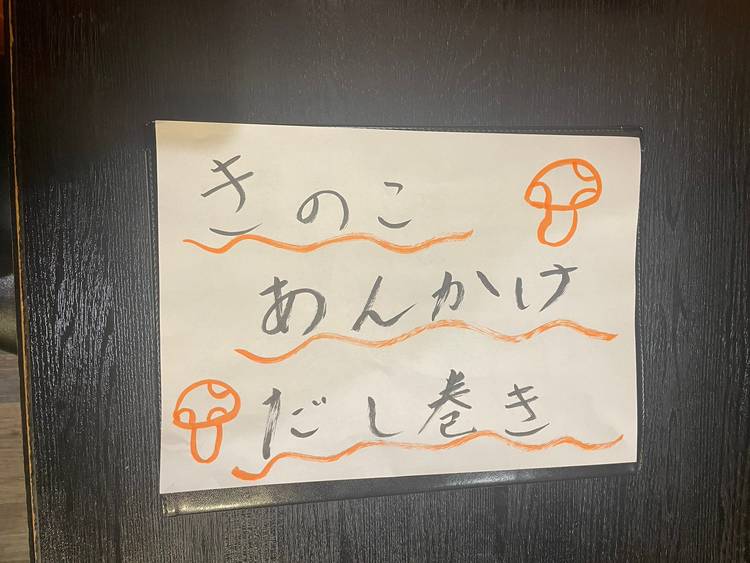 きのこ
あんかけ
だし巻き